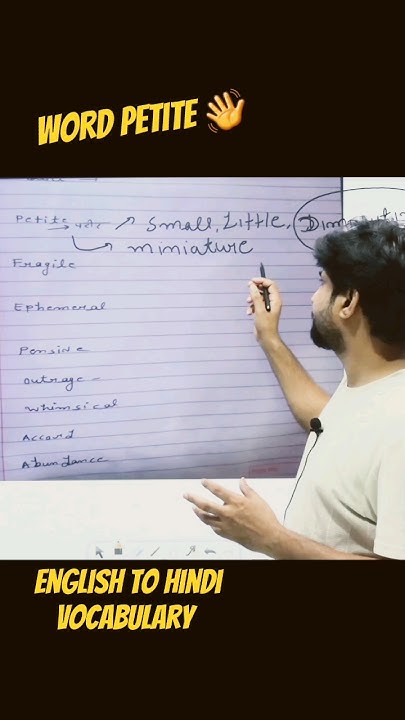 WORD PETITE 👋
Petite → small, Little,
miniature
Fragile
Ephemeral
Pensive
outrage -
whimsical
Accord
Abundance
ENGLISH TO HINDI
VOCABULARY